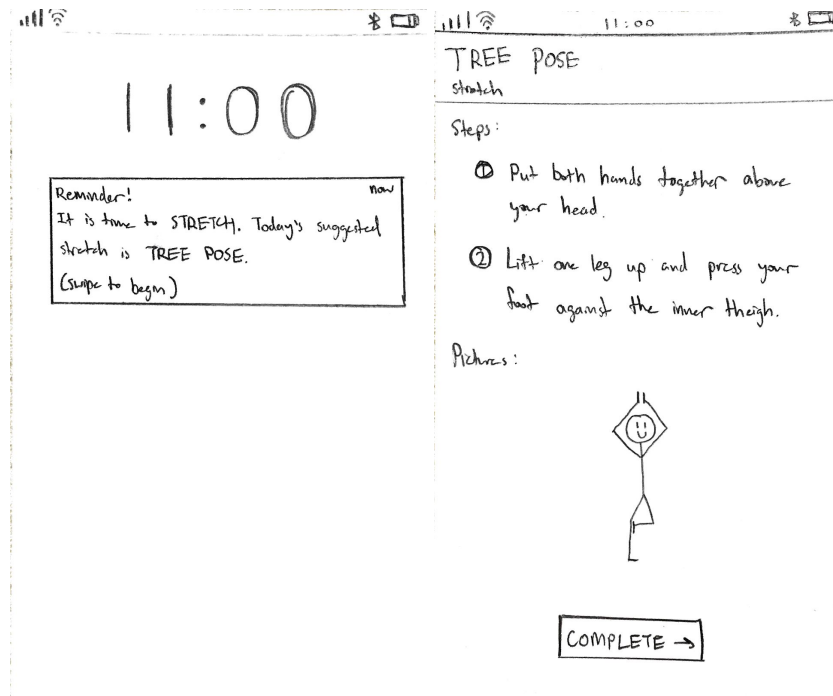 11:00
Reminder! now
It is time to STRETCH. Today's suggested
stretch is TREE POSE.
(swipe to begin)
11:00
TREE POSE
stretch
Steps:
① Put both hands together above
your head.
② Lift one leg up and press your
foot against the inner theigh.
Pictures:
COMPLETE →